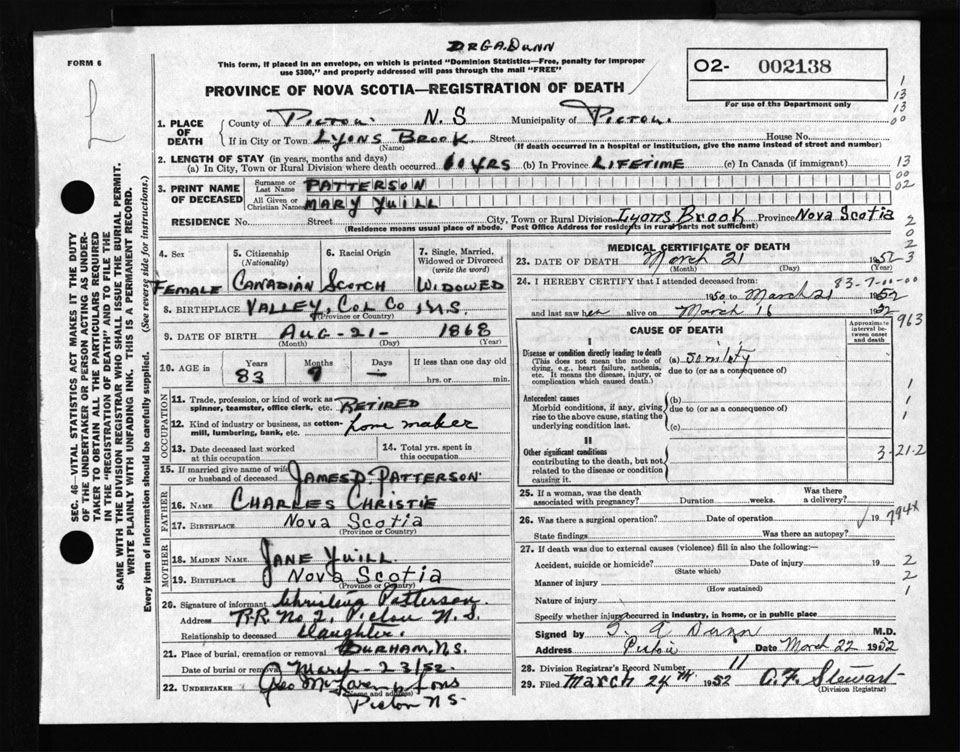 DR G.A. DUNN
FORM 6
This form, if placed in an envelope, on which is printed "Dominion Statistics—Free, penalty for improper
use $300," and properly addressed will pass through the mail "FREE"
PROVINCE OF NOVA SCOTIA—REGISTRATION OF DEATH
02- 002138
For use of the Department only
L
1. PLACE OF DEATH
County of PICTOU. N.S Municipality of PICTOU.
If in City or Town LYONS BROOK Street House No.
(Name) (If death occurred in a hospital or institution, give the name instead of street and number)
2. LENGTH OF STAY (in years, months and days)
(a) In City, Town or Rural Division where death occurred 60 YRS (b) In Province LIFETIME (c) In Canada (if immigrant)
3. PRINT NAME OF DECEASED
Surname or Last Name PATTERSON
All Given or Christian Names MARY YUILL
RESIDENCE No. Street City, Town or Rural Division Lyons Brook Province Nova Scotia
(Residence means usual place of abode. Post Office Address for residents in rural parts not sufficient)
4. Sex
FEMALE
5. Citizenship (Nationality)
CANADIAN
6. Racial Origin
SCOTCH
7. Single, Married, Widowed or Divorced (write the word)
WIDOWED
8. BIRTHPLACE VALLEY, COL CO N.S.
(Province or Country)
9. DATE OF BIRTH AUG - 21 - 1868
(Month) (Day) (Year)
10. AGE in Years Months Days If less than one day old
83 — hrs. or min.
OCCUPATION
11. Trade, profession, or kind of work as spinner, teamster, office clerk, etc. RETIRED
12. Kind of industry or business, as cotton-mill, lumbering, bank, etc. Home maker
13. Date deceased last worked at this occupation
14. Total yrs. spent in this occupation
15. If married give name of wife or husband of deceased JAMES D. PATTERSON
FATHER
16. NAME CHARLES CHRISTIE
17. BIRTHPLACE NOVA SCOTIA
(Province or Country)
MOTHER
18. MAIDEN NAME JANE YUILL
19. BIRTHPLACE NOVA SCOTIA
(Province or Country)
20. Signature of informant Christena Patterson.
Address R.R. No 2, Pictou N.S.
Relationship to deceased daughter.
21. Place of burial, cremation or removal DURHAM, N.S.
Date of burial or removal March - 23/52.
22. UNDERTAKER Geo McLaren & Sons
(Name and address)
Pictou N S.
MEDICAL CERTIFICATE OF DEATH
23. DATE OF DEATH March 21 1952
(Month) (Day) (Year)
24. I HEREBY CERTIFY that I attended deceased from: 83-7-00-00
1950 to March 21 1952
and last saw her alive on March 16 1952
CAUSE OF DEATH
Approximate interval between onset and death
I
Disease or condition directly leading to death (a) senility
(This does not mean the mode of dying, e.g., heart failure, asthenia, etc. It means the disease, injury, or complication which caused death.)
due to (or as a consequence of)
Antecedent causes (b)
Morbid conditions, if any, giving rise to the above cause, stating the underlying condition last.
due to (or as a consequence of)
(c)
II
Other significant conditions
contributing to the death, but not related to the disease or condition causing it.
25. If a woman, was the death associated with pregnancy? Duration weeks. Was there a delivery?
26. Was there a surgical operation? Date of operation 19
State findings Was there an autopsy?
27. If death was due to external causes (violence) fill in also the following:—
Accident, suicide or homicide? Date of injury 19
(State which)
Manner of injury
(How sustained)
Nature of injury
Specify whether injury occurred in industry, in home, or in public place
Signed by G A Dunn M.D.
Address Pictou Date March 22 1952
28. Division Registrar's Record Number 11
29. Filed March 24th 1952 C. F. Stewart
(Division Registrar)
1
13
13
00
13
00
02
2
0
2
3
963
1
1
1
3-21-2
794x
2
2
1
SEC. 46—VITAL STATISTICS ACT MAKES IT THE DUTY
OF THE UNDERTAKER OR PERSON ACTING AS UNDERTAKER TO OBTAIN ALL THE PARTICULARS REQUIRED
IN THE "REGISTRATION OF DEATH" AND TO FILE THE
SAME WITH THE DIVISION REGISTRAR WHO SHALL ISSUE THE BURIAL PERMIT.
WRITE PLAINLY WITH UNFADING INK. THIS IS A PERMANENT RECORD.
Every item of information should be carefully supplied. (See reverse side for instructions.)